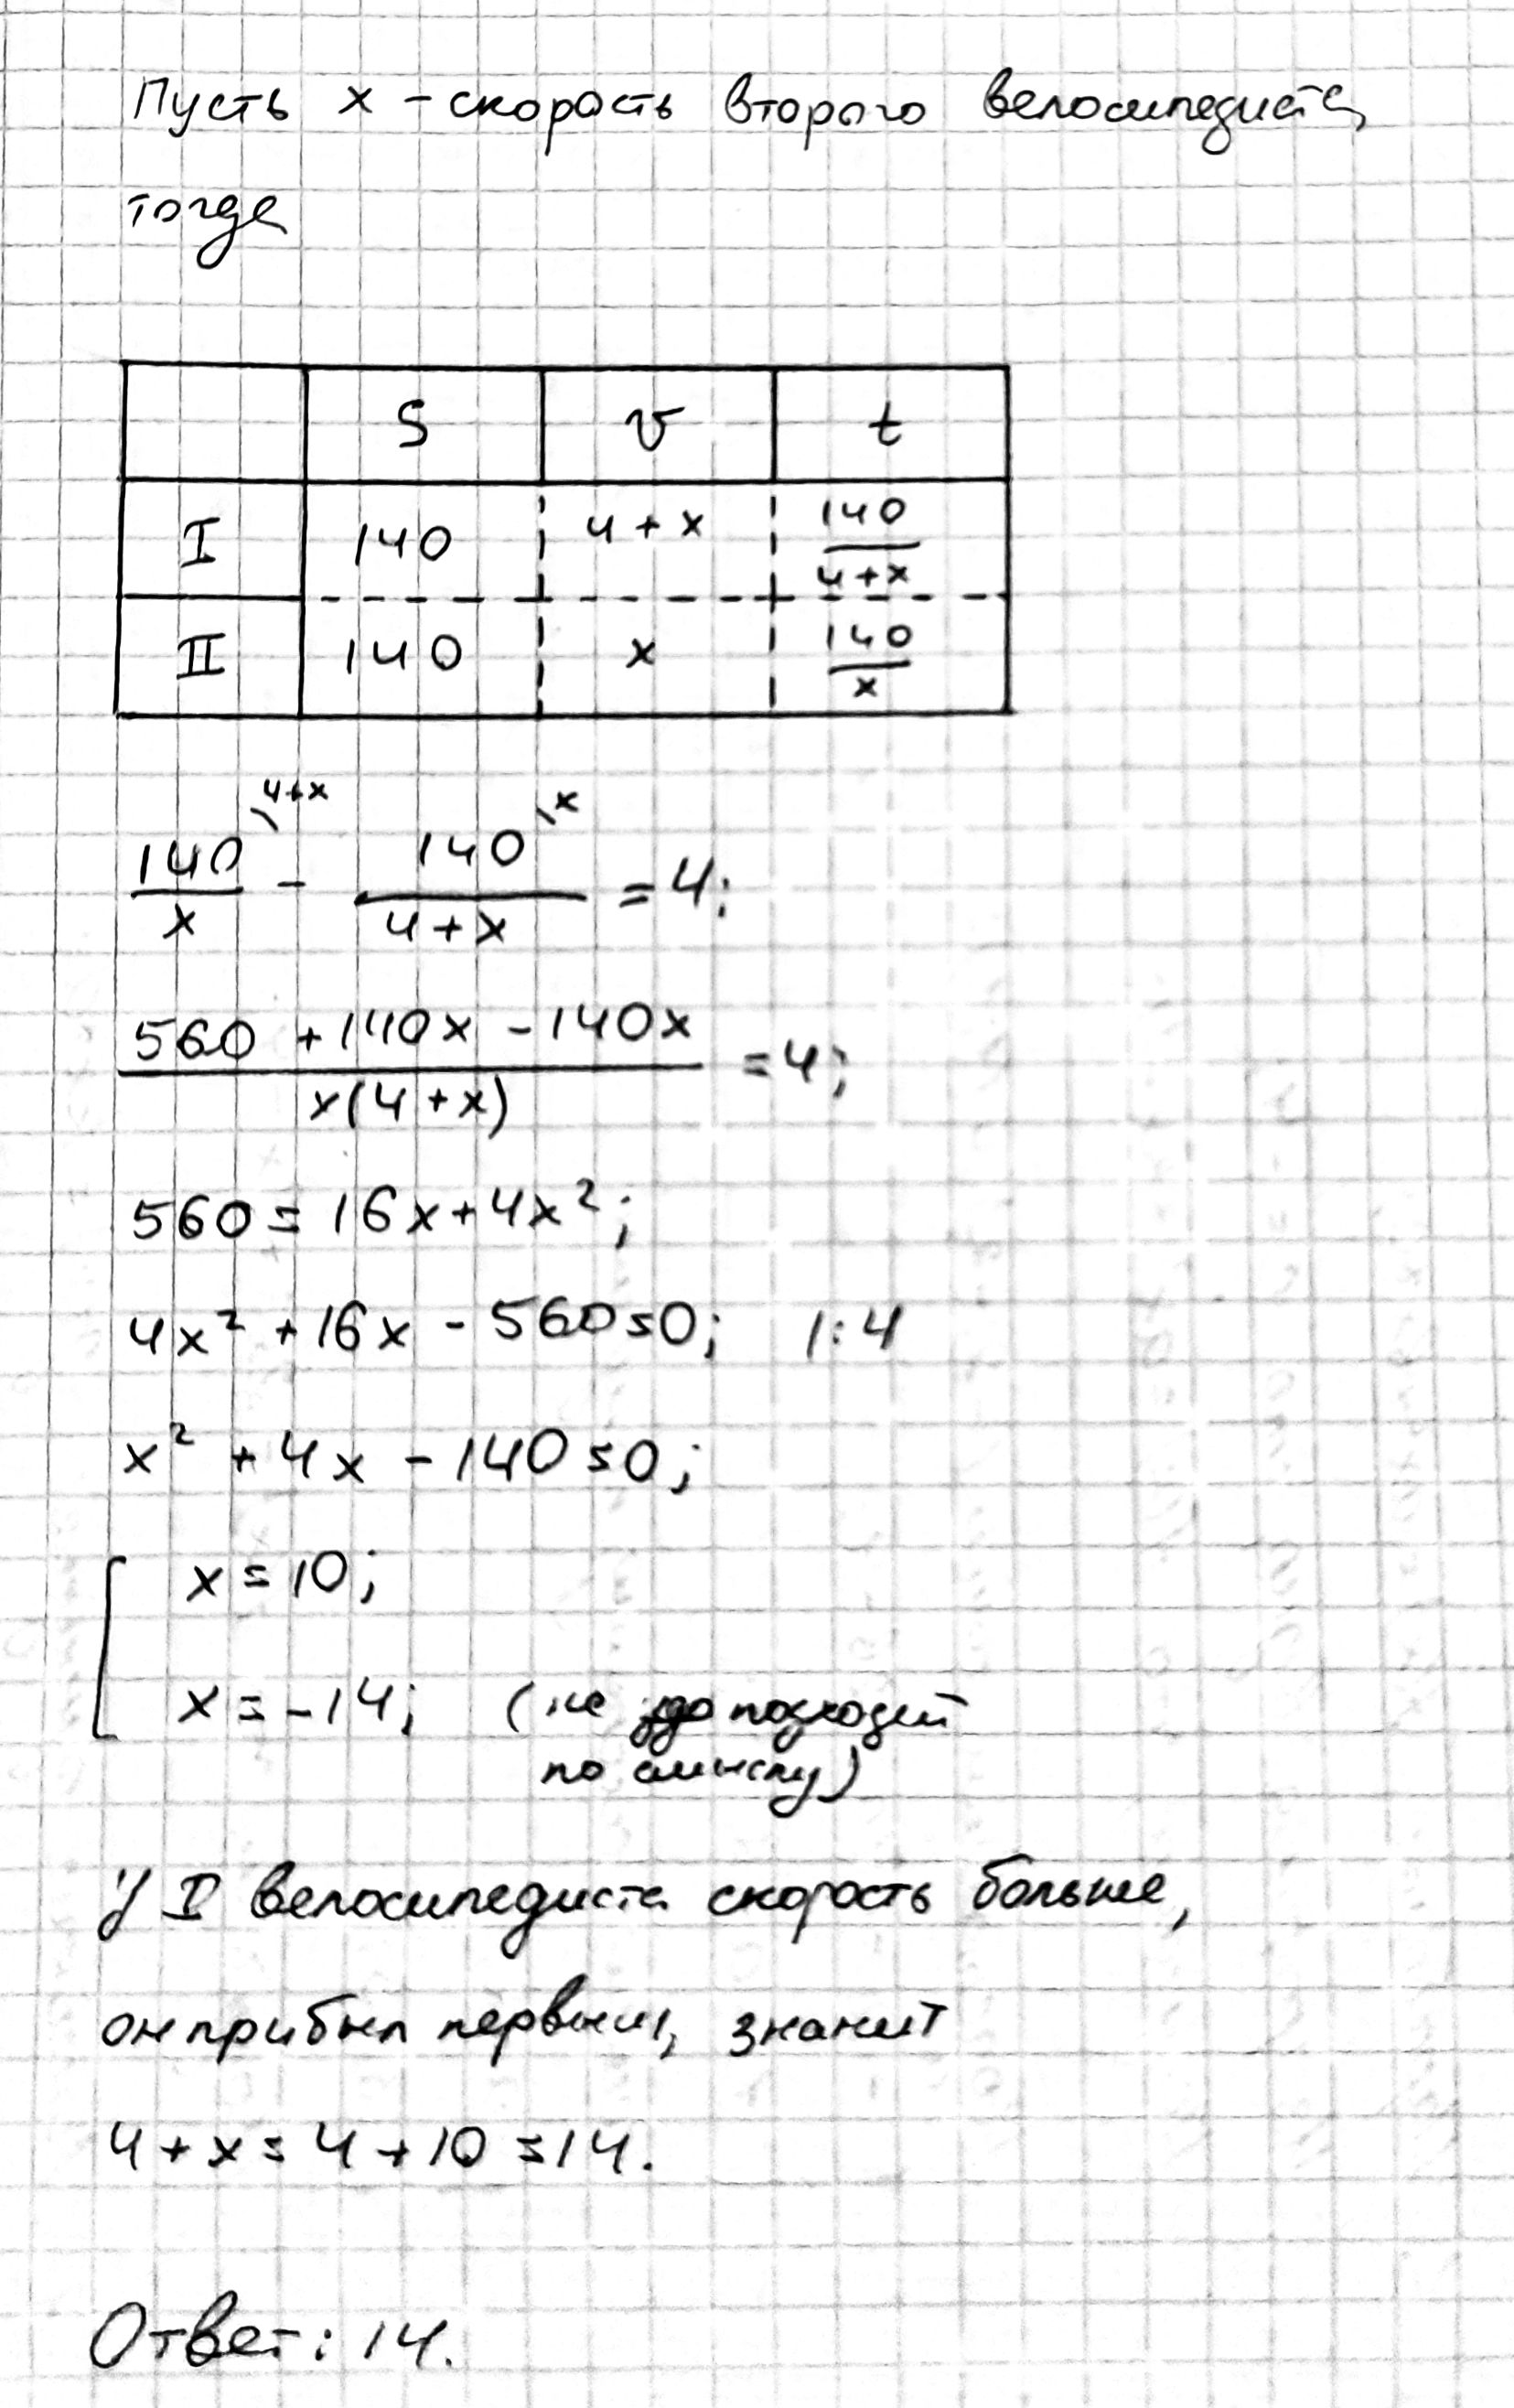 Пусть x - скорость второго велосипедиста,
тогда
S v t
I 140 4+x 140/(4+x)
II 140 x 140/x
140/x \4+x - 140/(4+x) \x = 4;
(560 + 140x - 140x)/(x(4+x)) = 4;
560 = 16x + 4x²;
4x² + 16x - 560 = 0; |:4
x² + 4x - 140 = 0;
[ x = 10;
x = -14; (не подходит
по смыслу)
У I велосипедиста скорость больше,
он прибыл первым, значит
4 + x = 4 + 10 = 14.
Ответ: 14.